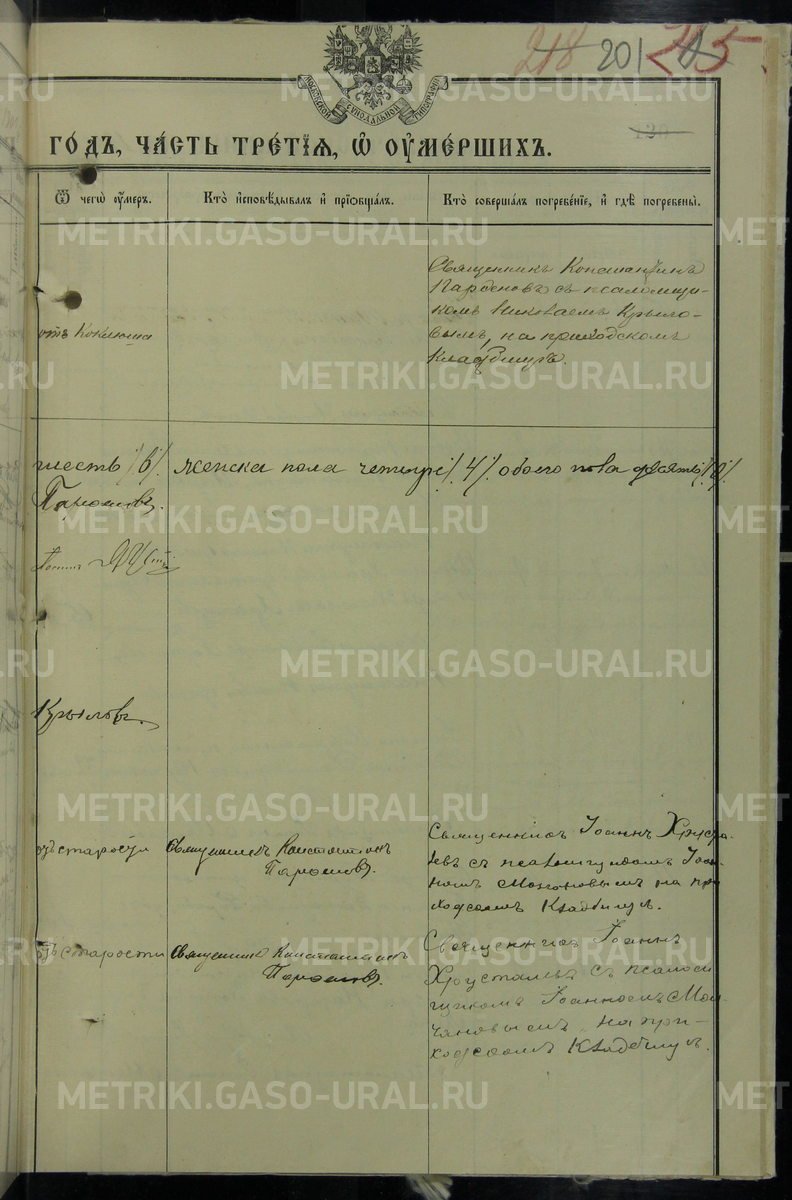 218 201 215
МОСКОВСКОЙ СѴНОДАЛЬНОЙ ТИПОГРАФІИ
130
ГО́ДЪ, ЧА́СТЬ ТРЕ́ТІѦ, Ѡ҆ ОУ҆МЕ́РШИХЪ.
Ѿ чегѡ̀ оу҆́меръ.
Кто̀ и҆сповѣ́дывалъ и҆ прїѡбща́лъ.
Кто̀ соверша́лъ погребе́нїе, и҆ гдѣ̀ погребены̀.
отъ Коклюша
Священникъ Константинъ
Парѳеновъ съ псаломщи-
комъ Николаемъ Крыло-
вымъ, на приходскомъ
Кладбищѣ.
шесть /6/. женска пола четыре /4/. обоего пола десять /10/.
Крыловъ.
отъ старости
Священникъ Константинъ
Священникъ Іоаннъ Хруста-
левъ съ псаломщикомъ Іоан-
номъ Молчановымъ на при
ходскомъ Кладбищѣ.
отъ старости
Священникъ Константинъ
Священникъ Іоаннъ
Хрусталевъ съ псаломщ
щикомъ Іоанномъ Мол-
чановымъ, на при-
ходскомъ Кладбищѣ.
METRIKI.GASO-URAL.RU